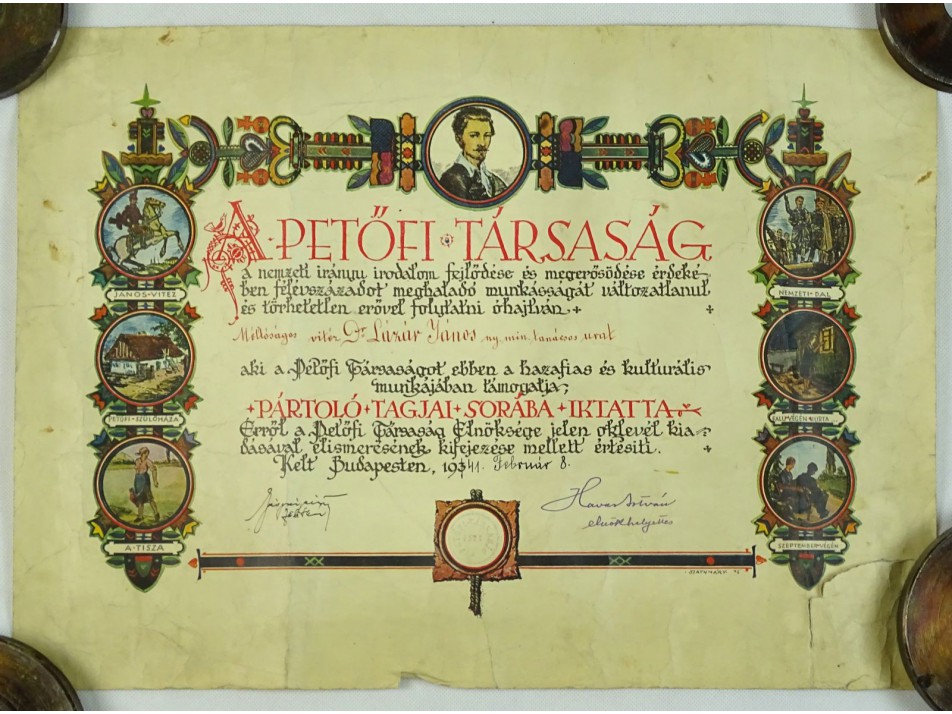 A·PETŐFI·TÁRSASÁG
a nemzeti irányu irodalom fejlődése és megerősödése érdeké-
ben félévszázadot meghaladó munkásságát változatlanul
és törhetetlen erővel folytatni óhajtván
Méltóságos vitéz Dr Lázár János ny. min. tanácsos urat
aki a Petőfi Társaságot ebben a hazafias és kulturális
munkájában támogatja,
PÁRTOLÓ TAGJAI SORÁBA IKTATTA
Erről a Petőfi Társaság Elnöksége jelen oklevél kia-
dásával elismerésének kifejezése mellett értesiti.
Kelt Budapesten, 1941. Február 8.
JÁNOS·VITÉZ
PETŐFI·SZÜLŐHÁZA
A·TISZA
NEMZETI·DAL
FALU·VÉGÉN·KURTA
SZEPTEMBER·VÉGÉN
Havas István
elnökhelyettes